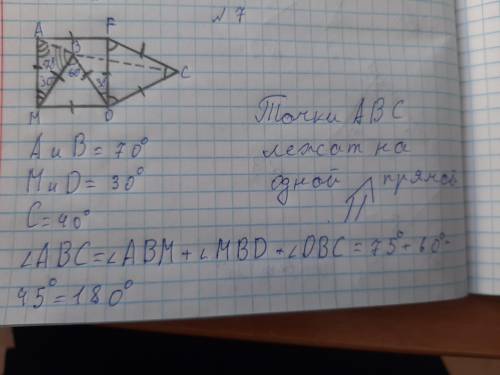 №7
A
F
B
75
30
60
30
C
M
D
Точки ABC
лежат на
одной прямой
A и B = 70°
M и D = 30°
C = 40°
∠ABC=∠ABM+∠MBD+∠DBC=75°+60°+
45°=180°